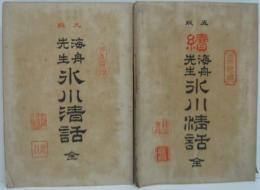 九版
海舟
先生
氷川清話
全
五版
續
海舟
先生
氷川清話
全